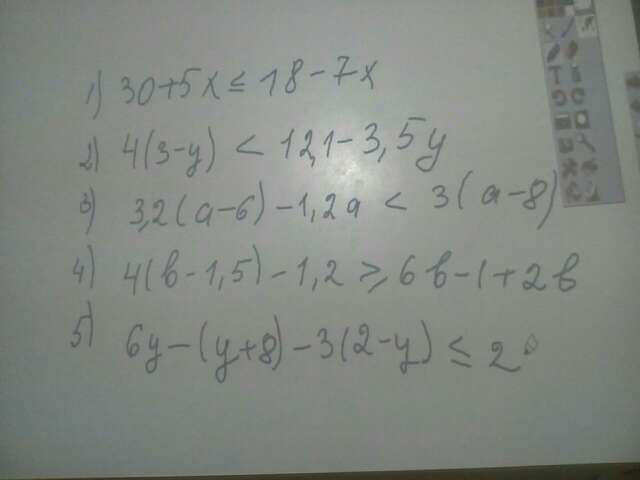 1) 30+5x ≤ 18-7x
2) 4(3-y) < 12,1-3,5y
3) 3,2(a-6)-1,2a < 3(a-8)
4) 4(в-1,5)-1,2 ≥ 6в-1+2в
5) 6y-(y+8)-3(2-y) ≤ 2